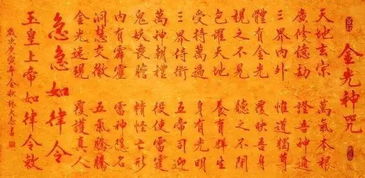 金光神咒
天地玄宗 萬氣本根
廣修億劫 證吾神通
三界內外 惟道獨尊
體有金光 覆映吾身
視之不見 聽之不聞
包羅天地 養育群生
受持萬遍 身有光明
三界侍衛 五帝司迎
萬神朝禮 役使雷霆
鬼妖喪膽 精怪亡形
內有霹靂 雷神隱名
洞慧交徹 五氣騰騰
金光速現 覆護真人
急急如律令
玉皇上帝如律令敕